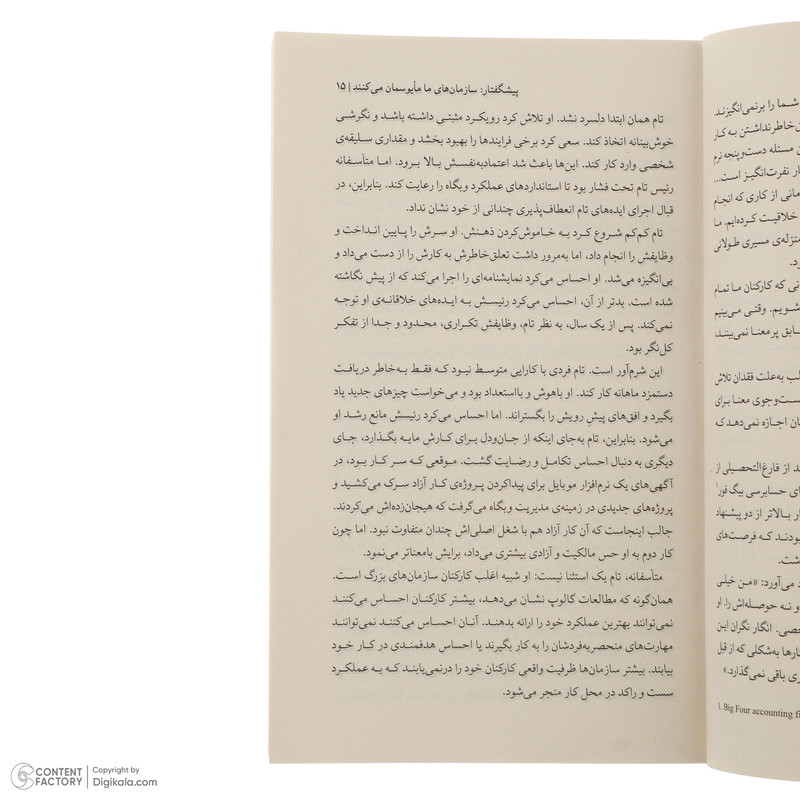 پیشگفتار: سازمان‌های ما مأیوسمان می‌کنند | ۱۵
تام همان ابتدا دلسرد نشد. او تلاش کرد رویکرد مثبتی داشته باشد و نگرشی
خوش‌بینانه اتخاذ کند. سعی کرد برخی فرایندها را بهبود بخشد و مقداری سلیقه‌ی
شخصی وارد کار کند. این‌ها باعث شد اعتمادبه‌نفسش بالا برود. اما متأسفانه
رئیس تام تحت فشار بود تا استانداردهای عملکرد وبگاه را رعایت کند. بنابراین، در
قبال اجرای ایده‌های تام انعطاف‌پذیری چندانی از خود نشان نداد.
تام کم‌کم شروع کرد به خاموش‌کردن ذهنش. او سرش را پایین انداخت و
وظایفش را انجام داد، اما به‌مرور داشت تعلق‌خاطرش به کارش را از دست می‌داد و
بی‌انگیزه می‌شد. او احساس می‌کرد نمایشنامه‌ای را اجرا می‌کند که از پیش نگاشته
شده است. بدتر از آن، احساس می‌کرد رئیسش به ایده‌های خلاقانه‌ی او توجه
نمی‌کند. پس از یک سال، به نظر تام، وظایفش تکراری، محدود و جدا از تفکر
کل‌نگر بود.
این شرم‌آور است. تام فردی با کارایی متوسط نبود که فقط به‌خاطر دریافت
دستمزد ماهانه کار کند. او باهوش و بااستعداد بود و می‌خواست چیزهای جدید یاد
بگیرد و افق‌های پیش رویش را بگستراند. اما احساس می‌کرد رئیسش مانع رشد او
می‌شود. بنابراین، تام به‌جای اینکه از جان‌ودل برای کارش مایه بگذارد، جای
دیگری به دنبال احساس تکامل و رضایت گشت. موقعی که سر کار بود، در
آگهی‌های یک نرم‌افزار موبایل برای پیداکردن پروژه‌ی کار آزاد سرک می‌کشید و
پروژه‌های جدیدی در زمینه‌ی مدیریت وبگاه می‌گرفت که هیجان‌زده‌اش می‌کردند.
جالب اینجاست که آن کار آزاد هم با شغل اصلی‌اش چندان متفاوت نبود. اما چون
کار دوم به او حس مالکیت و آزادی بیشتری می‌داد، برایش بامعناتر می‌نمود.
متأسفانه، تام یک استثنا نیست: او شبیه اغلب کارکنان سازمان‌های بزرگ است.
همان‌گونه که مطالعات گالوپ نشان می‌دهد، بیشتر کارکنان احساس می‌کنند
نمی‌توانند بهترین عملکرد خود را ارائه بدهند. آنان احساس می‌کنند نمی‌توانند
مهارت‌های منحصربه‌فردشان را به کار بگیرند یا احساس هدفمندی در کار خود
بیابند. بیشتر سازمان‌ها ظرفیت واقعی کارکنان خود را درنمی‌یابند که به عملکرد
سست و راکد در محل کار منجر می‌شود.
شما را برنمی‌انگیزند.
خاطرنداشتن به کار
مسئله دست‌وپنجه نرم
نفرت‌انگیز است...
از کاری که انجام
خلاقیت کرده‌ایم. ما
منزله‌ی مسیری طولانی
که کارکنان ما تمام
وقتی می‌بینیم
پرمعنا نمی‌بینند،
به‌علت فقدان تلاش
معنا برای
اجازه نمی‌دهد که
از فارغ‌التحصیلی از
حسابرسی بیگ فور۱
بالاتر از دو پیشنهاد
که فرصت‌های
می‌آورد: «من خیلی
و نه حوصله‌اش را. او
انگار نگران این
به‌شکلی که از قبل
باقی نمی‌گذارد.»
1. Big Four accounting
CONTENT FACTORY
Copyright by
Digikala.com